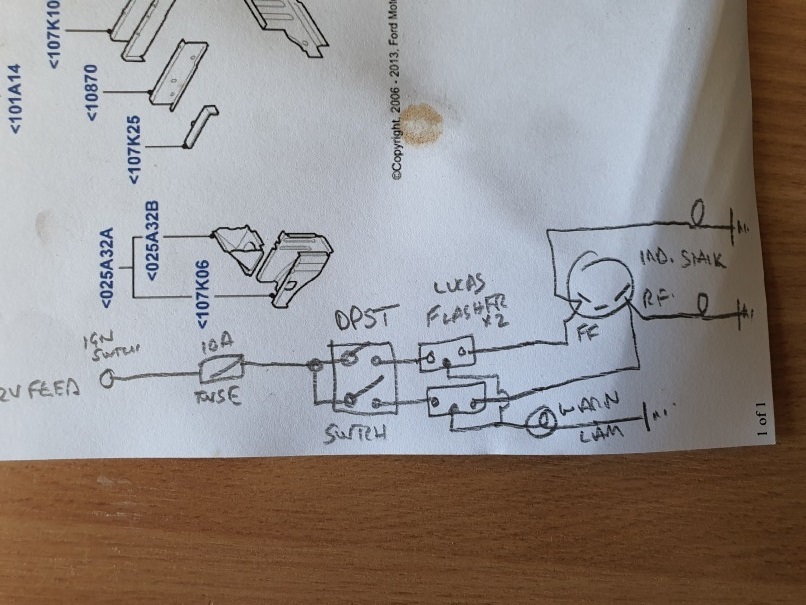 <107K10
<101A14
<10870
<107K25
©Copyright, 2006 - 2013, Ford Mot
<025A32B
<025A32A
<107K06
IGN
SWTCH
10A
FUSE
2V FEED
DPST
SWTCH
LUCAS
FLASHER
X2
IND. STALK
RF.
FF
WARN
LAM
1 of 1